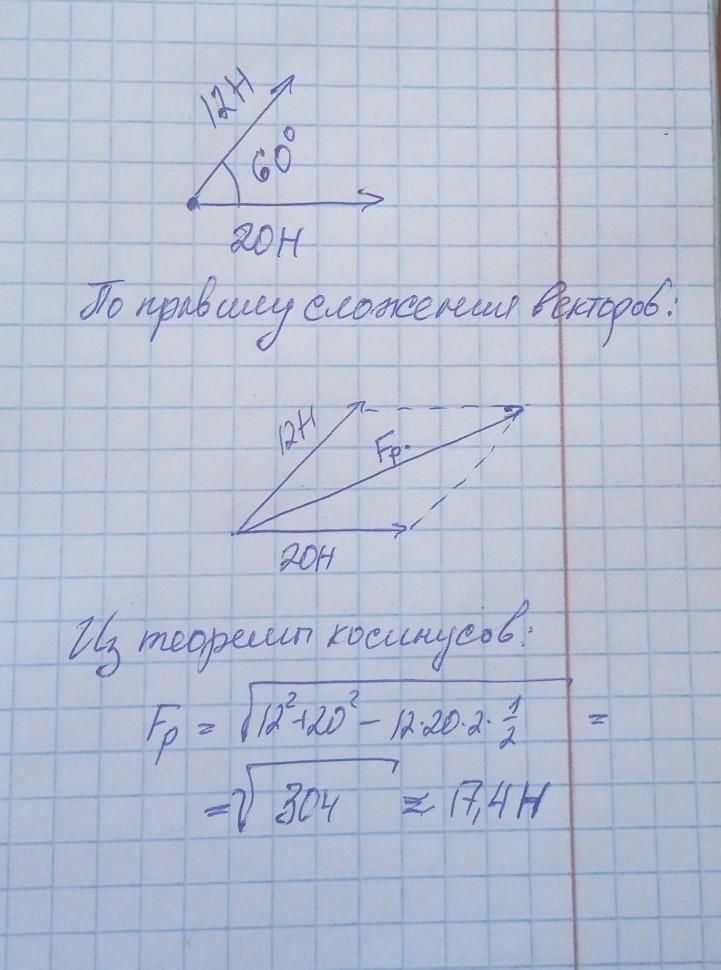 12Н
60°
20Н
По правилу сложения векторов:
12Н
Fр.
20Н
Из теоремы косинусов:
Fр = √12²+20² - 12·20·2·1/2 =
= √304 ≈ 17,4Н